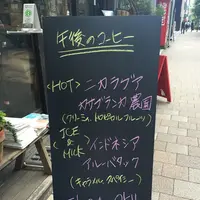 午後のコーヒー
<HOT> ニカラグア
カサブランカ農園
(クリーミィ、トロピカルフルーツ)
ICE
&
MILK
インドネシア
アルールバダック
(キャラメル、スパイシー)